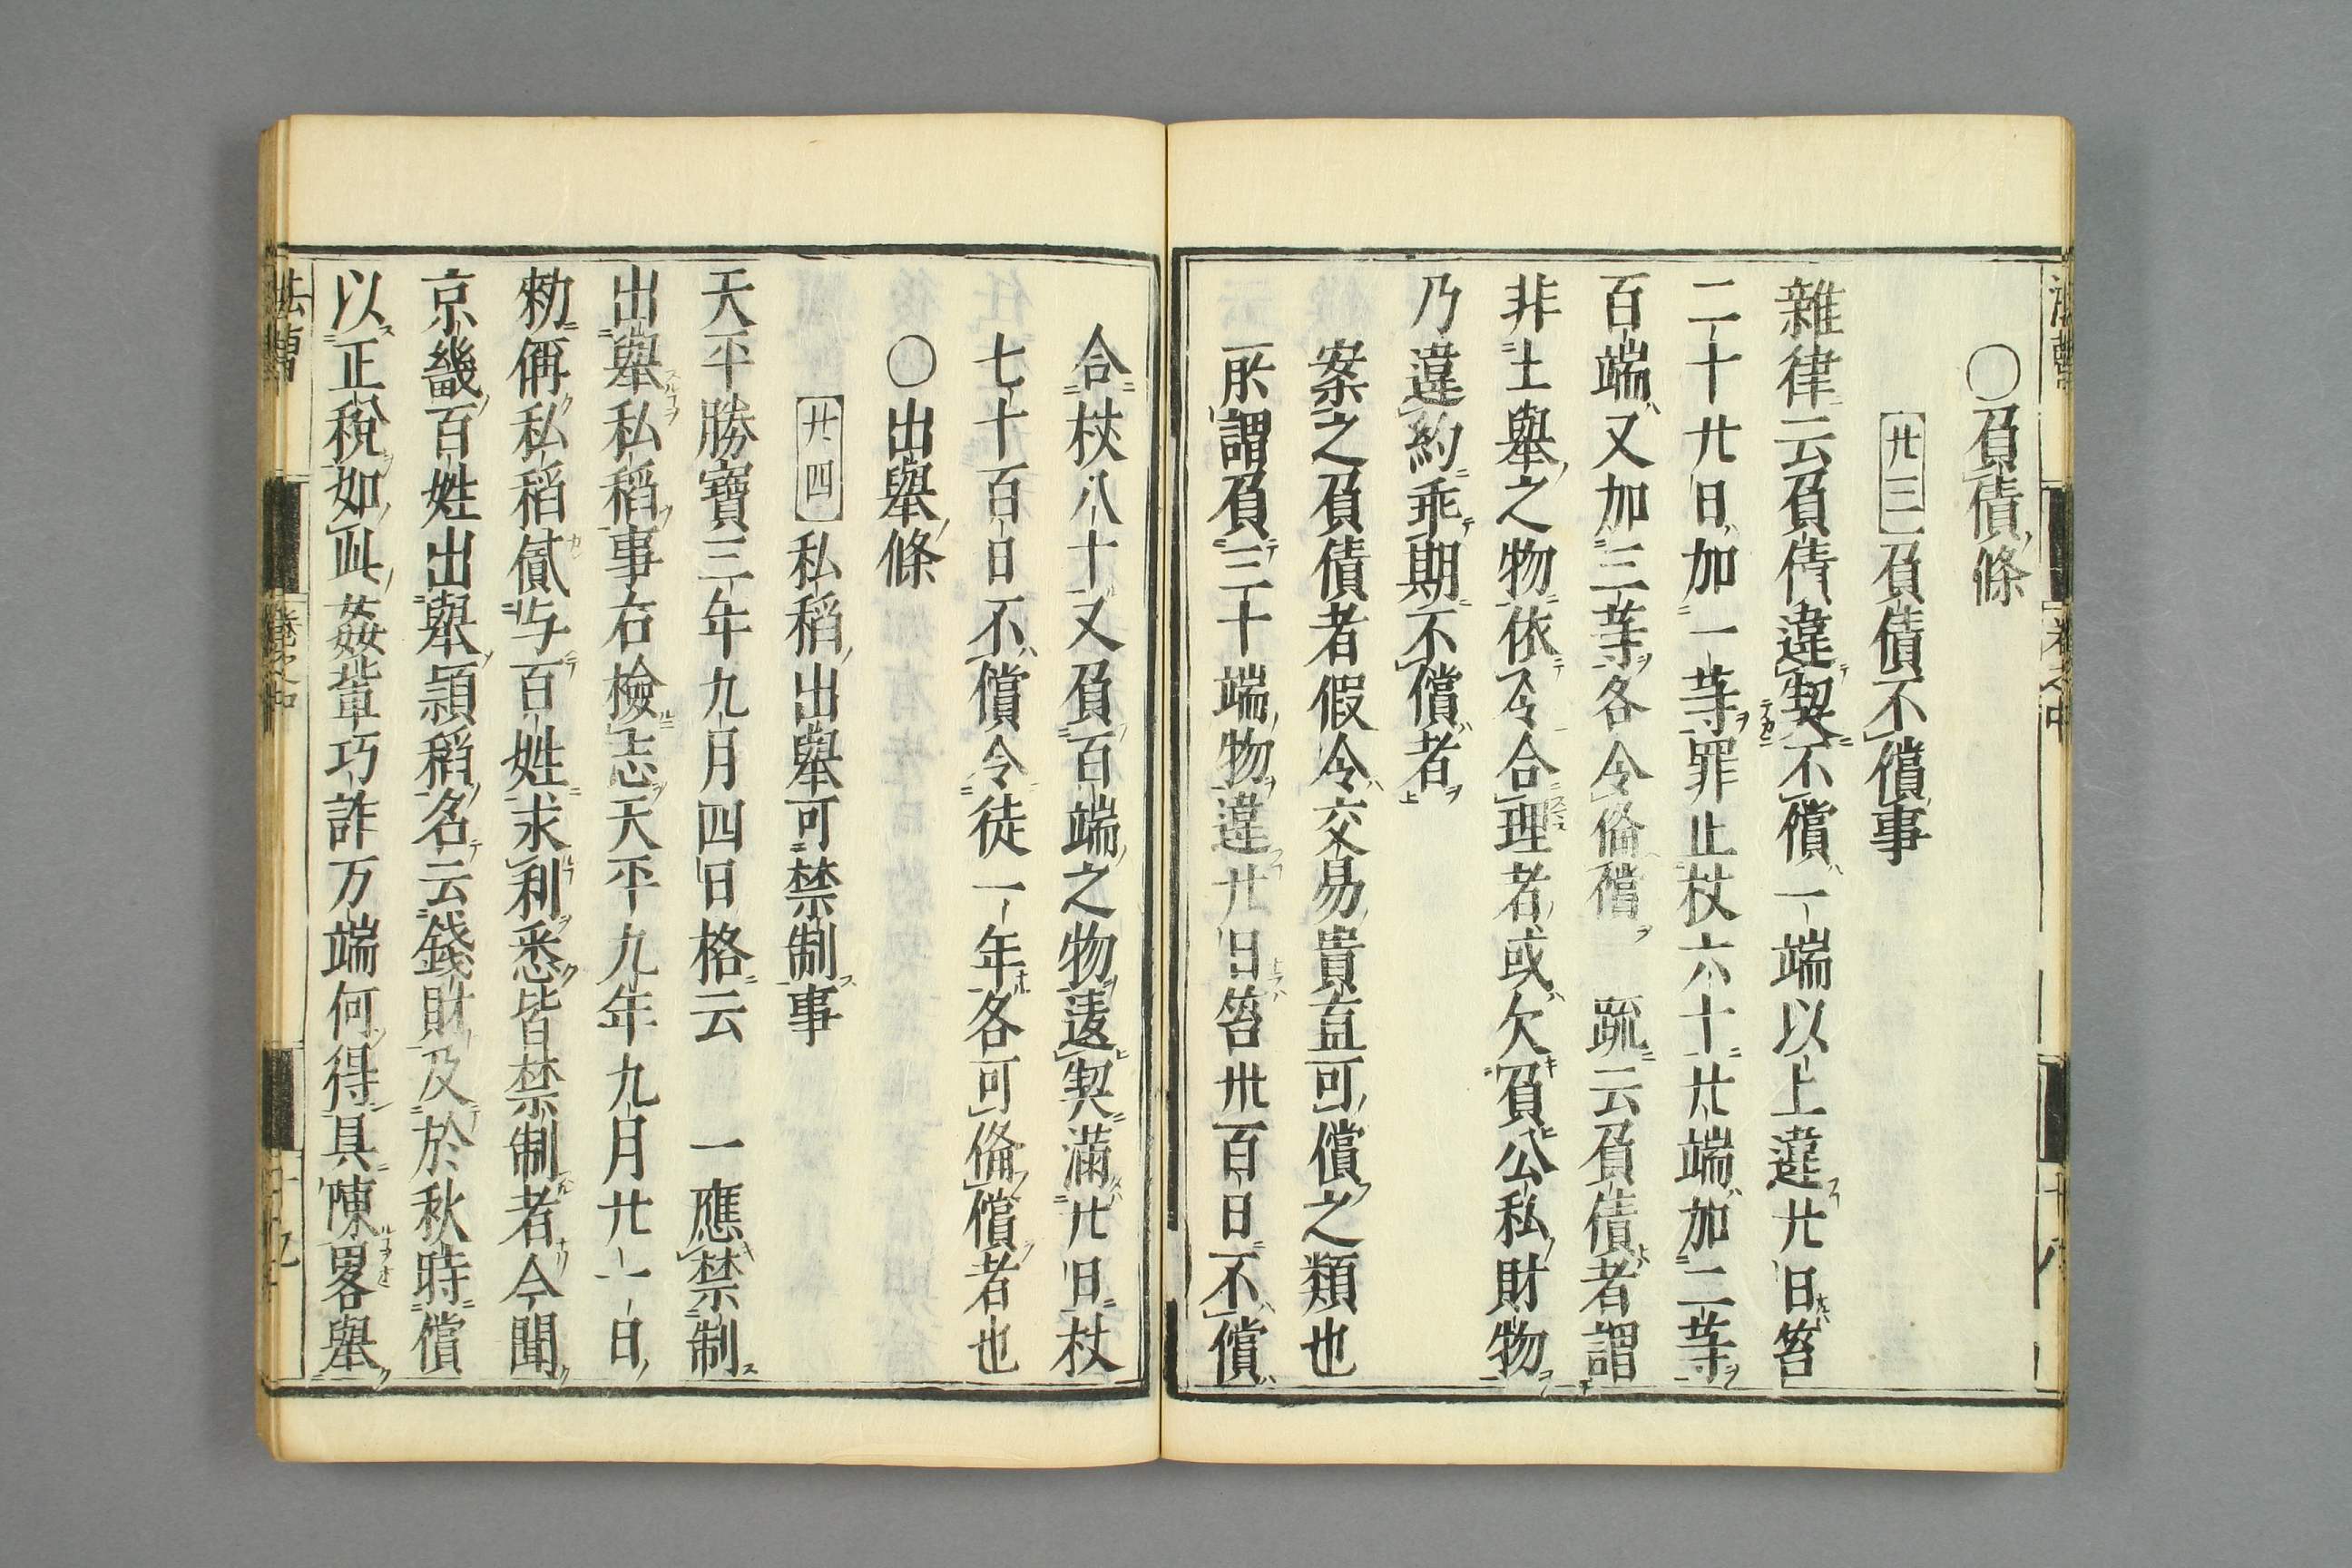 ○負債條
廿三 負債不償事
雜律云負債違契不償一端以上違廿日笞
二十廿日加一等罪止杖六十卅端加二等
百端又加三等各令俻償 疏云負債者謂
非土舉之物依令合理者或欠負公私財物
乃違約乖期不償者
案之負債者假令交易貴直可償之類也
所謂負三十端物違廿日笞卅百日不償
合杖八十又負百端之物違契滿廿日杖
七十百日不償令徒一年各可俻償者也
○出舉條
廿四 私稻出舉可禁制事
天平勝寶三年九月四日格云 一應禁制
出舉私稻事右檢志天平九年九月廿一日
勑偁私稻貸与百姓求利悉皆禁制者今聞
京畿百姓出舉頴稻名云錢財及於秋時償
以正稅如此姦輩巧詐万端何得具陳畧舉
卷之中
十八
卷之中
十九